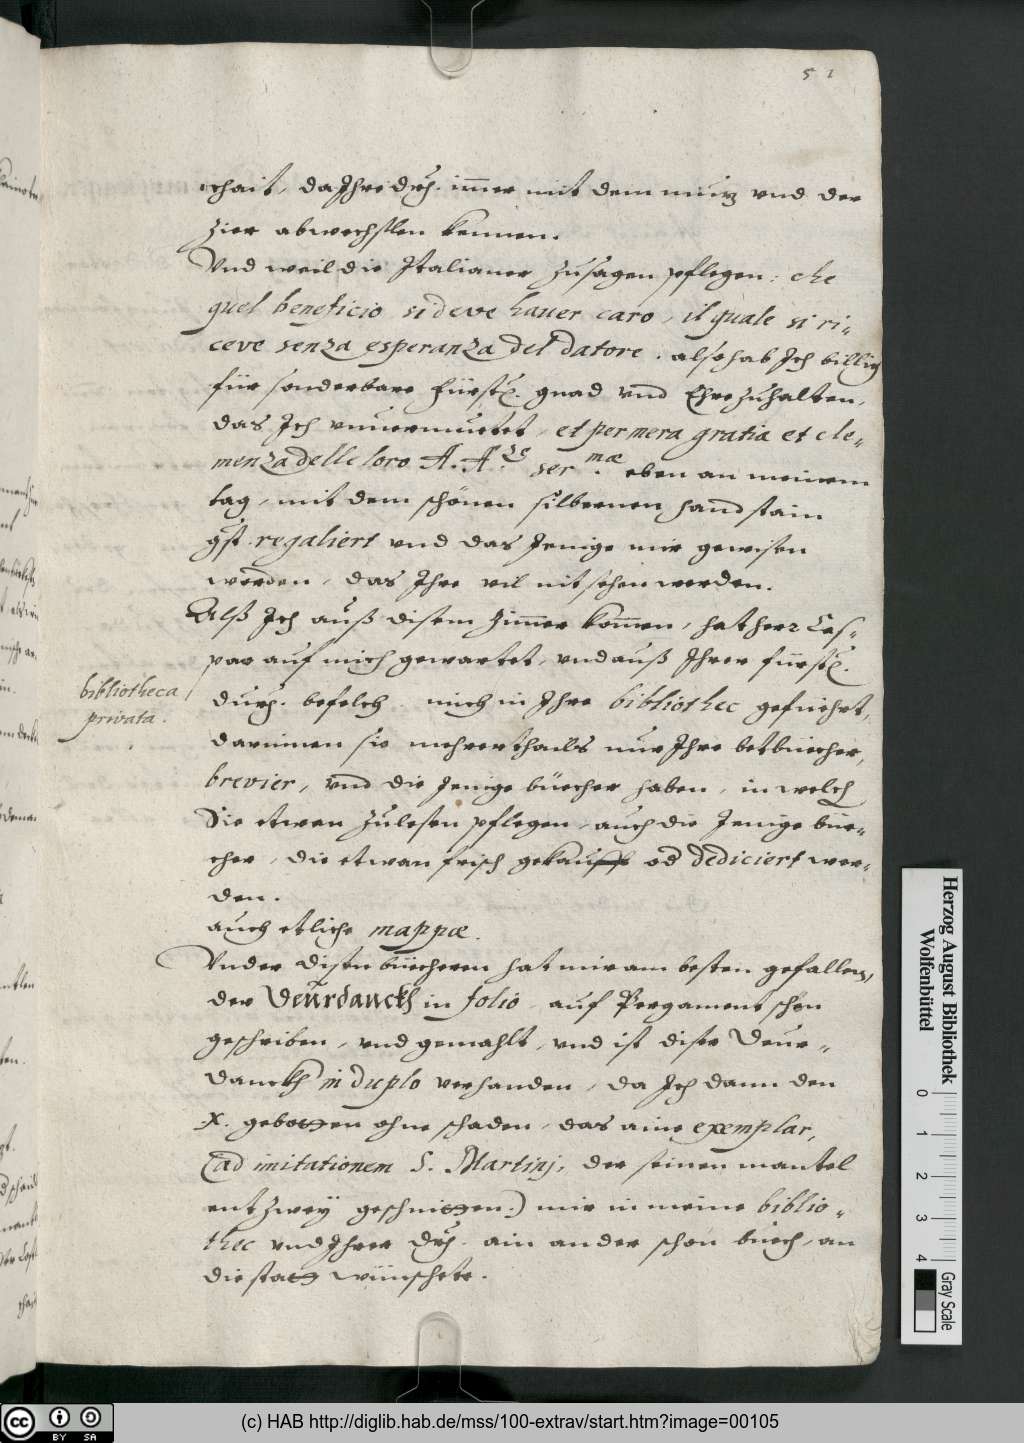 51
chait, da Ihre drh. immer mit dem nutz vnd der
zier abwechslen kennen.
Vnd weil die Italianer zu sagen pflegen: che
quel beneficio si deve hauer caro, il quale si ri-
ceve senza esperanza del datore. also hab Ich billig
für sonderbare fürstl. gnad vnd Ehre zuhalten,
das Ich vnuermuetet, et per mera gratia et cle-
menza delle loro A. A.ze ser.mae eben an meinem
tag, mit dem schönen silbernen handstain
gst. regaliert vnd das Jenige mir gewisen
worden, das Ihre vil nit sehen werden.
Alß Ich auß disem zimmer komen, hat herr Cas-
par auf mich gewartet, vnd auß Ihrer fürstl.
bibliotheca
privata.
durh. befelch mich in Ihre bibliothec gefuehrt,
darinnen sie mehrerthails nur Ihre betbüecher,
brevier, vnd die Jenige büecher haben, in welch
Sie etwan zulesen pflegen, auch die Jenige büe-
cher, die etwan frisch gekaufft od dediciert wer-
den.
auch etliche mappæ.
Vnder disen büecheren hat mir am besten gefallen,
der Deurdanckh in folio auf Pergament schön
geschriben, vnd gemahlt, vnd ist diser Deur-
danckh in duplo verhanden, da Ich dann den
X. gebotten ohne schaden, das aine exemplar,
(ad imitationem S. Martinj, der seinen mantel
entzwey geschnitten.) mir in meine biblio-
thec vnd Ihrer Drh. ain ander schön buech, an
die statt wünschete.
Herzog August Bibliothek
Wolfenbüttel
0 1 2 3 4
Gray Scale
CC BY SA
(c) HAB http://diglib.hab.de/mss/100-extrav/start.htm?image=00105